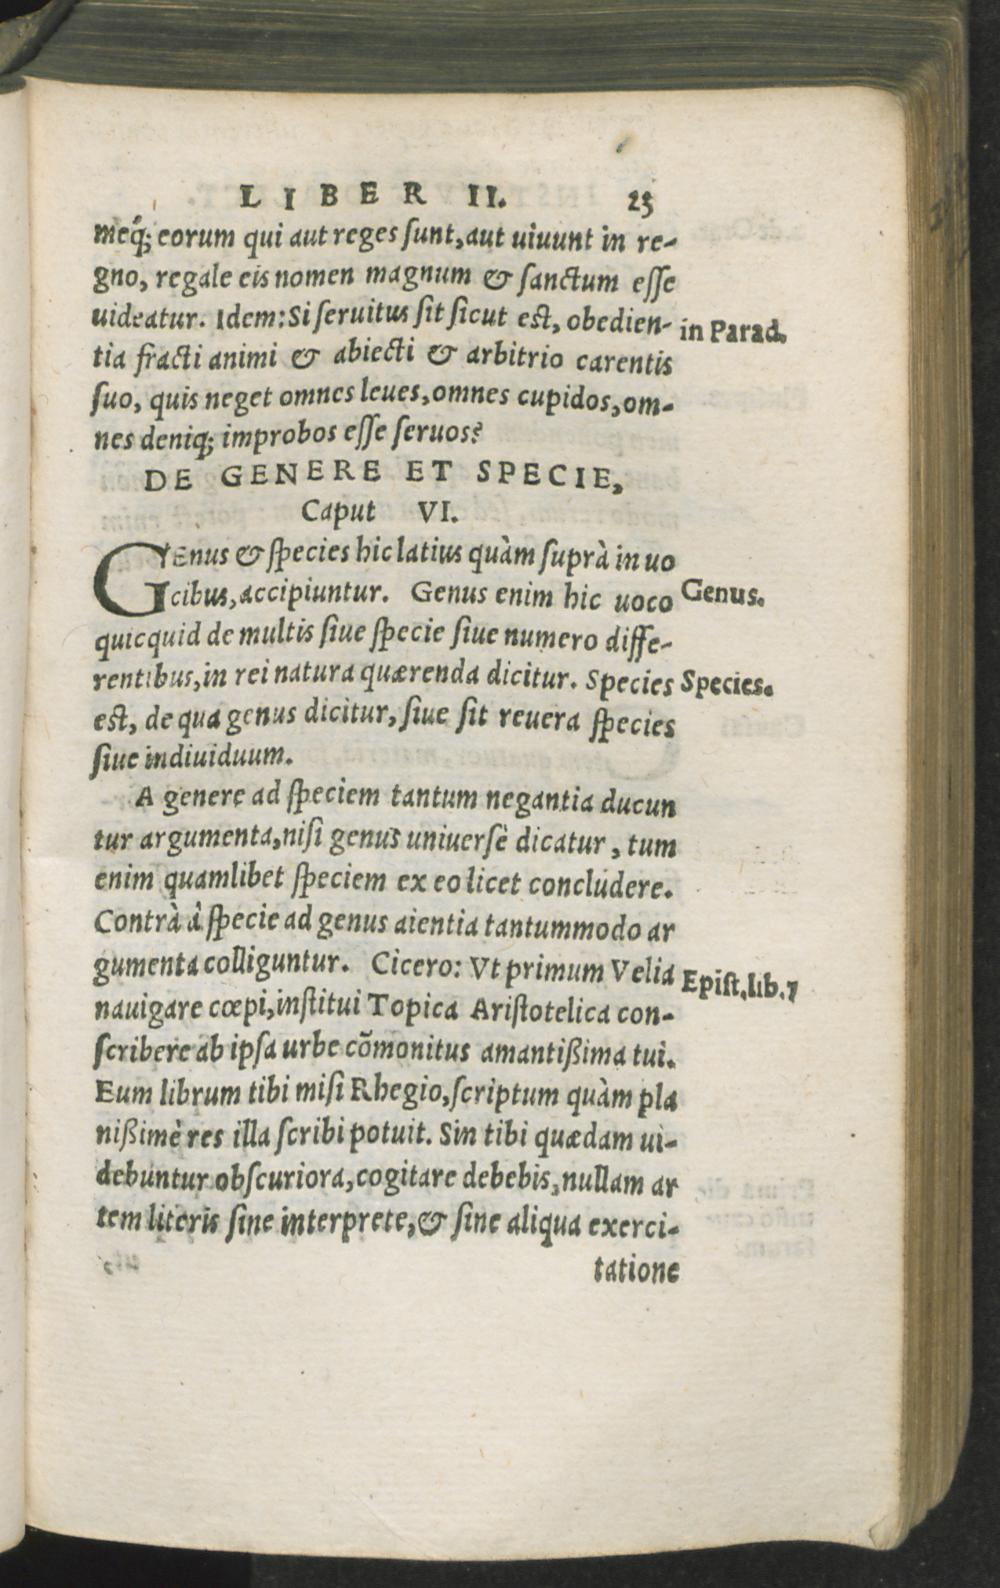 LIBER II. 23
meq́; eorum qui aut reges ſunt, aut uiuunt in re-
gno, regale eis nomen magnum & ſanctum eſſe
uideatur. Idem: Si ſeruitus ſit ſicut eſt, obedien- in Parad.
tia fracti animi & abiecti & arbitrio carentis
ſuo, quis neget omnes leues, omnes cupidos, om-
nes deniq; improbos eſſe ſeruos?
DE GENERE ET SPECIE,
Caput VI.
GEnus & ſpecies hic latius quàm ſuprà in uo
cibus, accipiuntur. Genus enim hic uoco Genus.
quicquid de multis ſiue ſpecie ſiue numero diffe-
rentibus, in rei natura quærenda dicitur. Species Species.
eſt, de qua genus dicitur, ſiue ſit reuera ſpecies
ſiue indiuiduum.
A genere ad ſpeciem tantum negantia ducun
tur argumenta, niſi genus uniuerſè dicatur, tum
enim quamlibet ſpeciem ex eo licet concludere.
Contrà à ſpecie ad genus aientia tantummodo ar
gumenta colliguntur. Cicero: Vt primum Velia Epiſt. lib. 7
nauigare cœpi, inſtitui Topica Ariſtotelica con-
ſcribere ab ipſa urbe cõmonitus amantißima tui.
Eum librum tibi miſi Rhegio, ſcriptum quàm pla
nißimè res illa ſcribi potuit. Sin tibi quædam ui-
debuntur obſcuriora, cogitare debebis, nullam ar
tem literis ſine interprete, & ſine aliqua exerci-
tatione